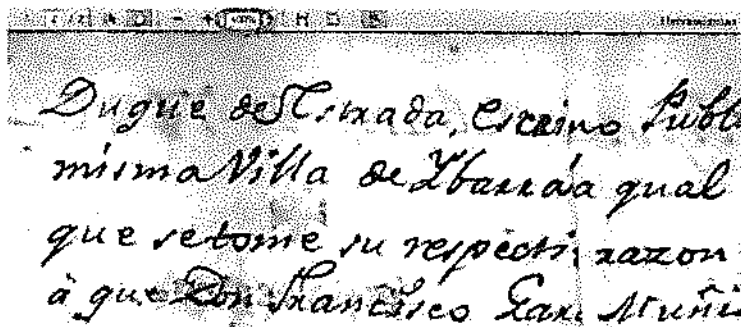 Duque de Estrada, Escrino Publ
misma Villa de Ybarra a qual
que se tome su respecti razon
à que Don Francisco Gar. Muñi